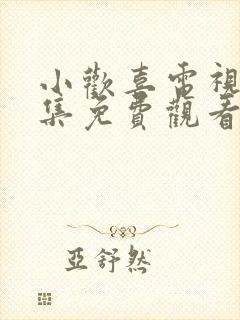 小歡喜電視
集免費觀看
亞舒然